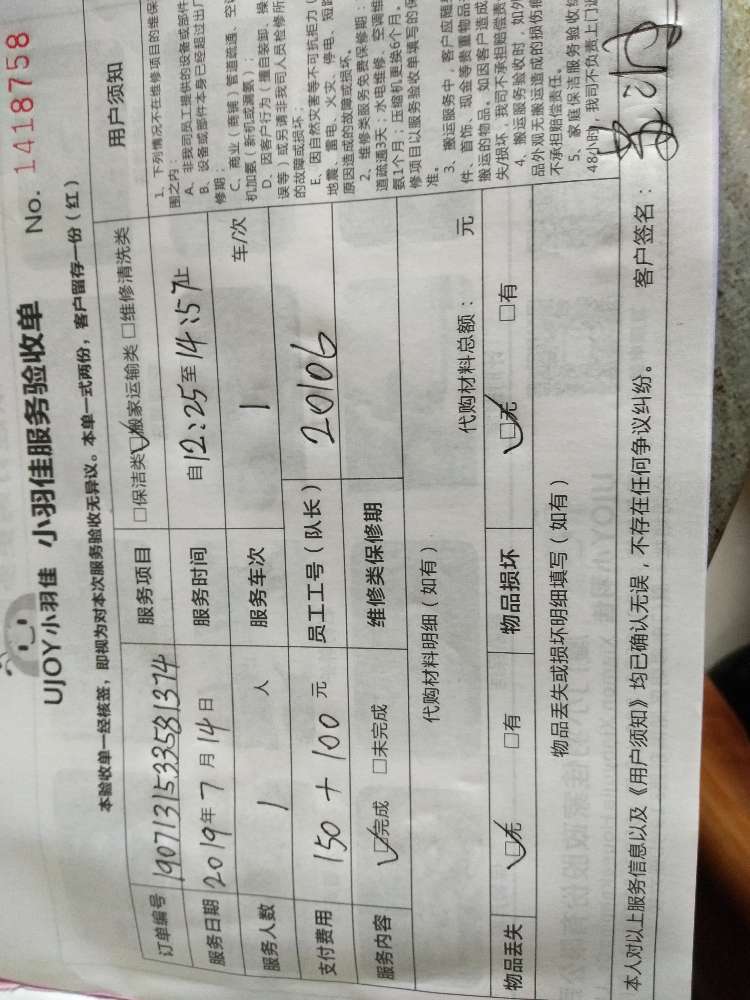 UJOY小羽佳 小羽佳服务验收单 No. 1418758
本验收单一经核签，即视为对本次服务验收无异议。本单一式两份，客户留存一份（红）
订单编号 190713153358 1374 服务项目 □保洁类 ☑搬家运输类 □维修清洗类
服务日期 2019年7月14日 服务时间 自12:25至14:57止
服务人数 1 人 服务车次 1 车/次
支付费用 150+100 元 员工工号（队长） 20106
服务内容 ☑完成 □未完成 维修类保修期
代购材料明细（如有） 代购材料总额： 元
物品丢失 ☑无 □有 物品损坏 ☑无 □有
物品丢失或损坏明细填写（如有）
本人对以上服务信息以及《用户须知》均已确认无误，不存在任何争议纠纷。 客户签名：
用户须知
1、下列情况不在维修项目的维保
围之内：
A、非我司员工提供的设备或部件
B、设备或部件本身已经超过出厂
修期；
C、商业（商铺）管道疏通、空
机加氨（新机或漏氨）；
D、因客户行为（擅自装卸、操
误等）或另请非我司人员检修所
的故障或损坏；
E、因自然灾害等不可抗拒力（
地震、雷电、火灾、停电、短路
原因造成的故障或损坏。
2、维修类服务免费保修期：
道疏通3天；水电维修、空调维
氨1个月；压缩机更换6个月。
修项目以服务验收单填写的保
准。
3、搬运服务中，客户应随
件、首饰、现金等贵重物品
搬运的物品。如因客户造成
失/损坏，我司不承担赔偿责
4、搬运服务验收时，如外
品外观无搬运造成的损伤痕
不承担赔偿责任。
5、家庭保洁服务验收
48小时，我司不负责上门